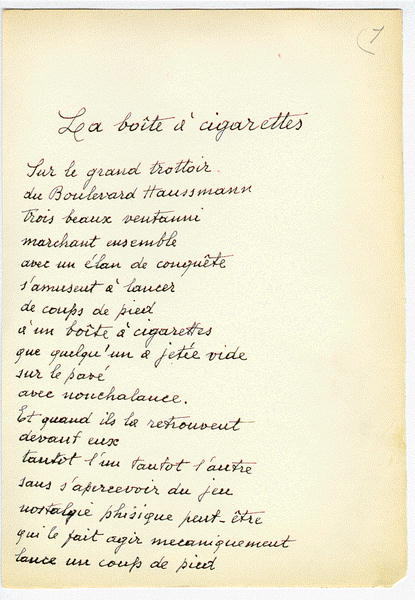 7
La boîte à cigarettes
Sur le grand trottoir
du Boulevard Haussmann
trois beaux ventanni
marchant ensemble
avec un élan de conquête
s'amusent à lancer
de coups de pied
à un boîte à cigarettes
que quelqu'un a jetée vide
sur le pavé
avec nonchalance.
Et quand ils la retrouvent
devant eux
tantot l'un tantot l'autre
sans s'apercevoir du jeu
nostalgie phisique peut-être
qui le fait agir mecaniquement
lance un coups de pied